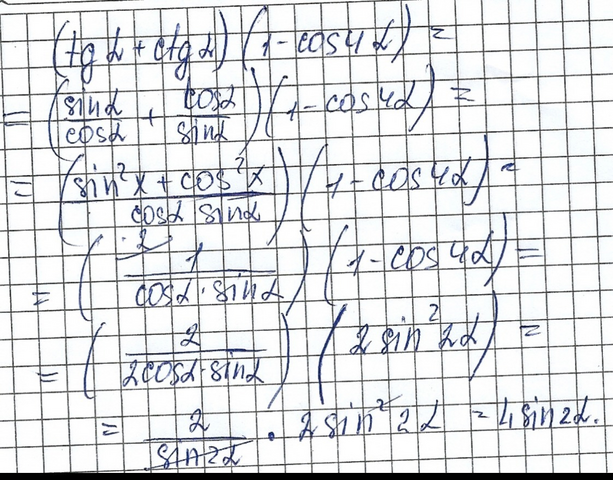 (tg α + ctg α)(1 - cos 4α) =
= (sin α / cos α + cos α / sin α)(1 - cos 4α) =
= ((sin² x + cos² x) / (cos α sin α))(1 - cos 4α) =
= (1 / (cos α · sin α))(1 - cos 4α) =
= (2 / (2 cos α · sin α))(2 sin² 2α) =
= 2 / sin 2α · 2 sin² 2α = 4 sin 2α.